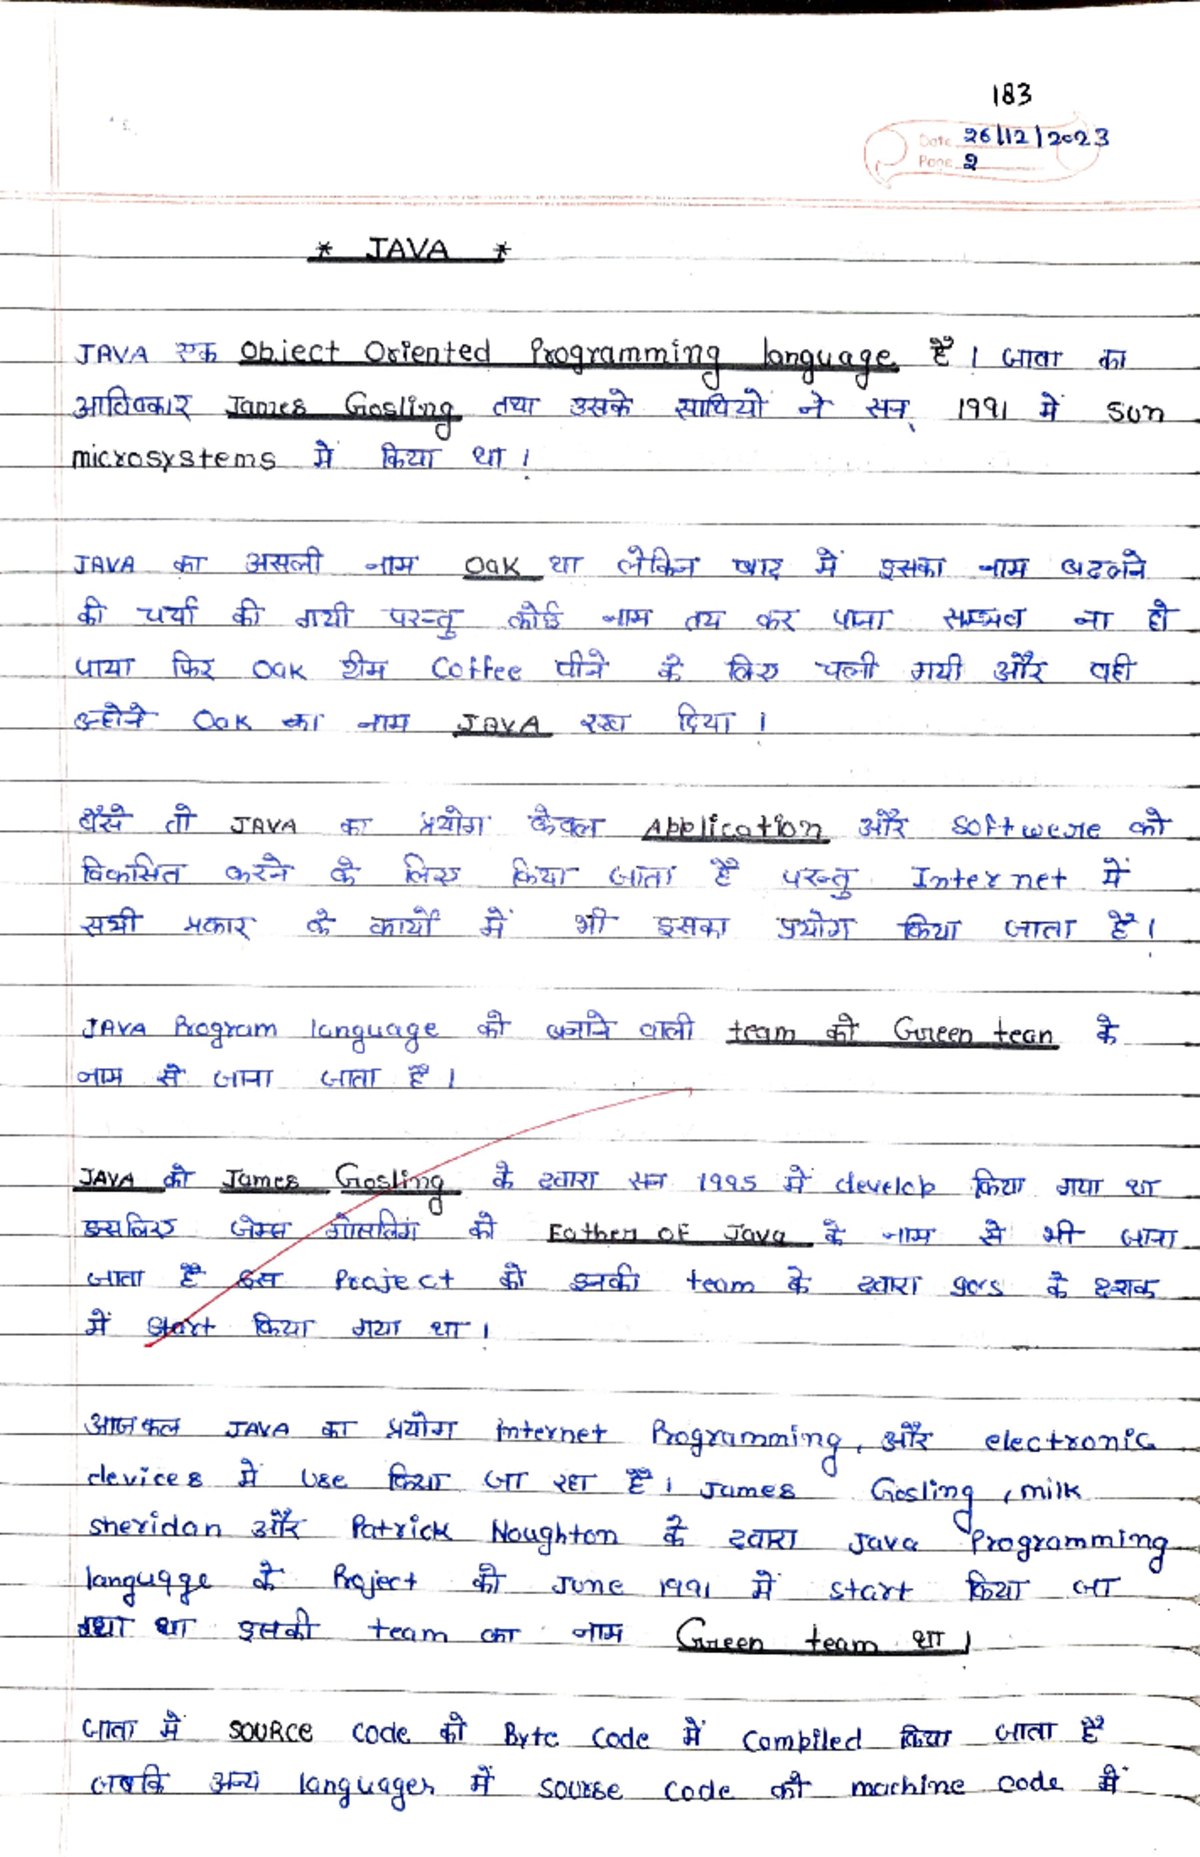 183
Date 26/12/2023
Page 2
* JAVA *
JAVA एक Object Oriented Programming language है । जावा का
आविष्कार James Gosling तथा उसके साथियों ने सन् 1991 में Sun
microsystems में किया था ।
JAVA का असली नाम Oak था लेकिन बाद में इसका नाम बदलने
की चर्चा की गयी परन्तु कोई नाम तय कर पाना सम्भव ना हो
पाया फिर Oak टीम Coffee पीने के लिए चली गयी और वही
उन्होने Oak का नाम JAVA रख दिया ।
वैसे तो JAVA का प्रयोग केवल Application और Softwere को
विकसित करने के लिए किया जाता है परन्तु Internet में
सभी प्रकार के कार्यों में भी इसका प्रयोग किया जाता है ।
JAVA Program language को बनाने वाली team को Green tean के
नाम से जाना जाता है ।
JAVA को James Gosling के द्वारा सन 1995 में develop किया गया था
इसलिए जेम्स गोसलिंग को Father OF Java के नाम से भी जाना
जाता है इस Project को इनकी team के द्वारा 90s के दशक
में Start किया गया था ।
आजकल JAVA का प्रयोग internet Programming, और electronic
devices में use किया जा रहा है । James Gosling , milk
sheridan और Patrick Noughton के द्वारा Java Programming
language के Project को June 1991 में start किया जा
था इसकी team का नाम Green team था ।
जावा में SOURCE code को Byte Code में Compiled किया जाता है
जबकि अन्य languages में sourse code को machine code में